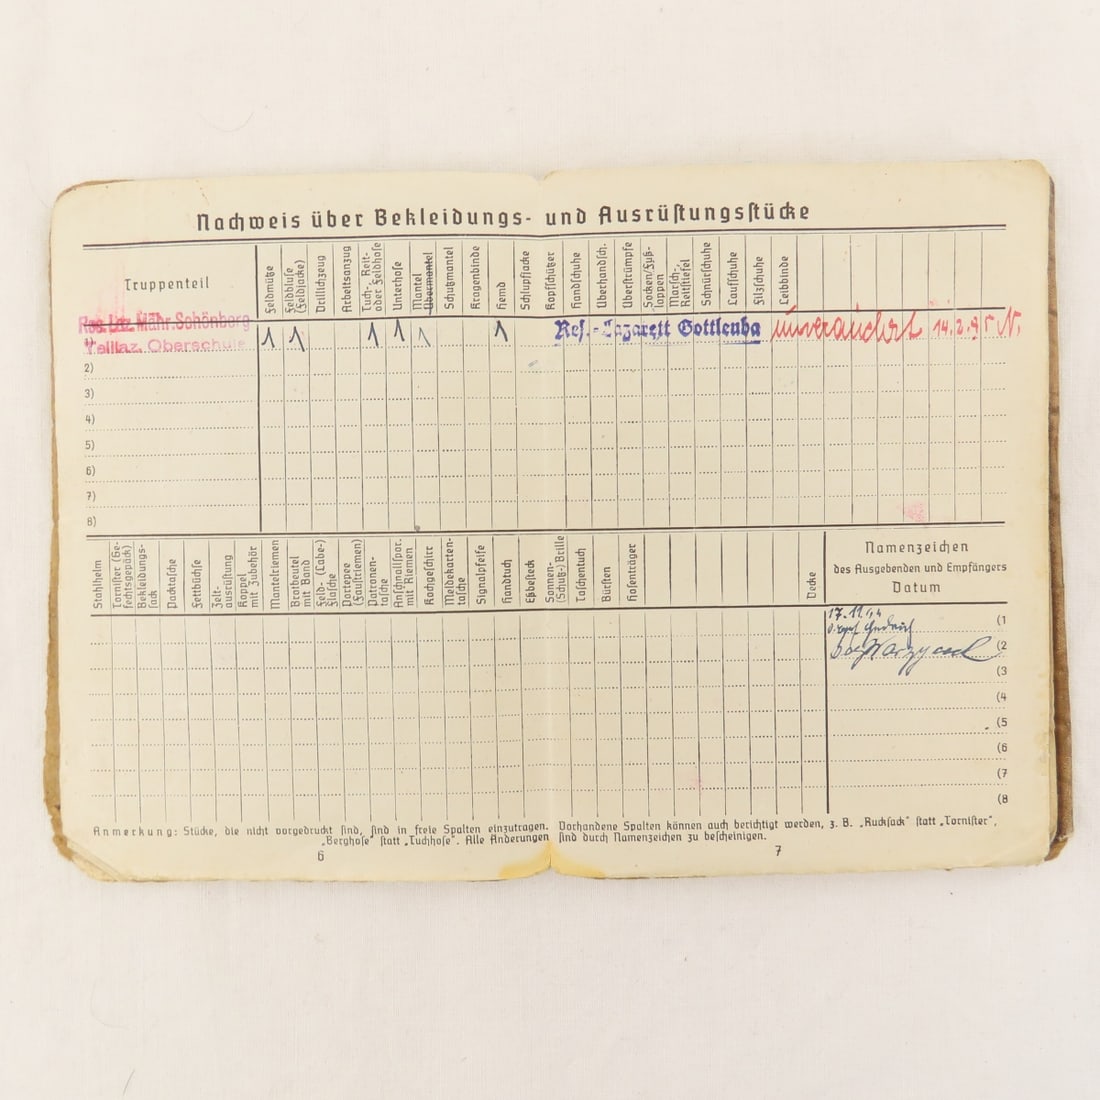 Nachweis über Bekleidungs- und Ausrüstungsstücke
Truppenteil
Feldmütze
Feldbluse (Feldjacke)
Drillichzeug
Arbeitsanzug
Tuch-, Reit- oder Feldhose
Unterhose
Mantel Übermantel
Schutzmantel
Kragenbinde
Hemd
Schlupfjacke
Kopfschützer
Handschuhe
Überhandsch.
Überstrümpfe
Socken/Fußlappen
Marsch-, Reitstiefel
Schnürschuhe
Laufschuhe
Filzschuhe
Leibbinde
Res. Laz. Mähr. Schönberg
Teillaz. Oberschule
1 1 1 1 1 1
Res.-Lazarett Gottleuba
unverändert 14.2.45 N.
2)
3)
4)
5)
6)
7)
8)
Stahlhelm
Tornister (Gefechtsgepäck)
Bekleidungssack
Packtasche
Fettbüchse
Zeltausrüstung
Koppel mit Zubehör
Mantelriemen
Brotbeutel mit Band
Feld- (Labe-) Flasche
Portepee (Faustriemen)
Patronentasche
Anschnallspor. mit Riemen
Kochgeschirr
Meldekartentasche
Signalpfeife
Handtuch
Eßbesteck
Sonnen- (Schutz-) Brille
Taschentuch
Bürsten
Hosenträger
Decke
Namenzeichen
des Ausgebenden und Empfängers
Datum
17.11.44
(1
(2
(3
(4
(5
(6
(7
(8
Anmerkung: Stücke, die nicht vorgedruckt sind, sind in freie Spalten einzutragen. Vorhandene Spalten können auch berichtigt werden, z. B. „Rucksack" statt „Tornister",
„Berghose" statt „Tuchhose". Alle Änderungen sind durch Namenzeichen zu bescheinigen.
6
7